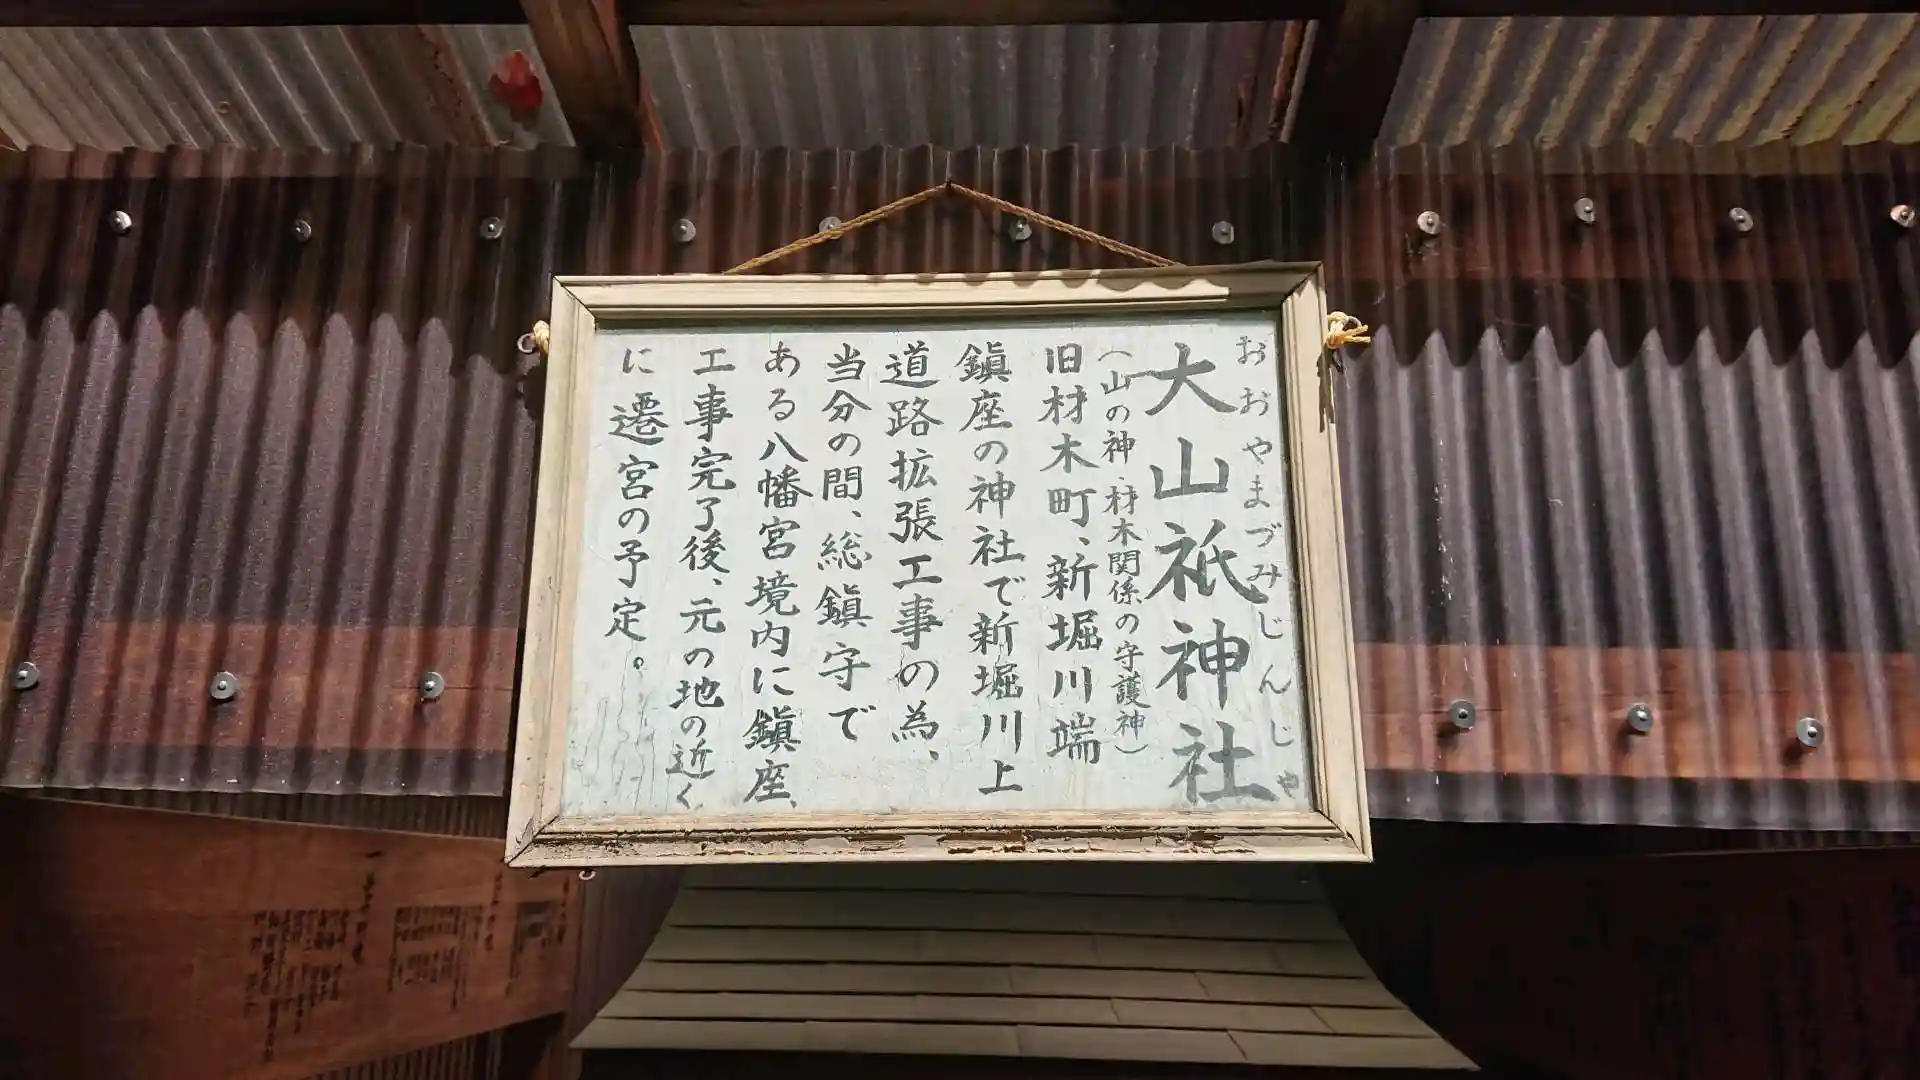 おおやまづみじんじゃ
大山祇神社
(山の神・材木関係の守護神)
旧材木町、新堀川端
鎭座の神社で新堀川上
道路拡張工事の為、
当分の間、総鎭守で
ある八幡宮境内に鎭座、
工事完了後、元の地の近く
に遷宮の予定。